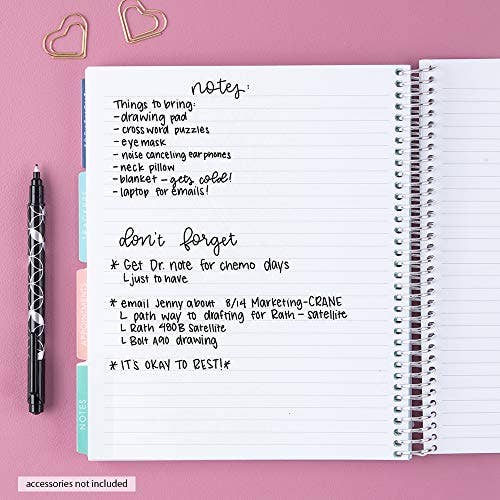 notes:
Things to bring:
- drawing pad
- crossword puzzles
- eye mask
- noise canceling earphones
- neck pillow
- blanket - gets cold!
- laptop for emails!
don't forget
* Get Dr. note for chemo days
L just to have
* email Jenny about 8/14 Marketing-CRANE
L path way to drafting for Rath - satellite
L Rath 480B Satellite
L Bolt A90 drawing
* IT'S OKAY TO REST! *
NOTES
accessories not included